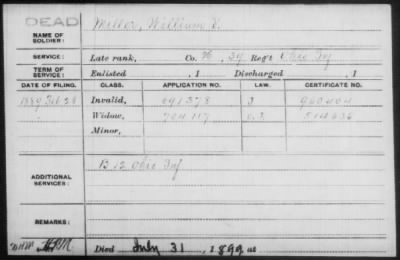 DEAD
Miller, William
NAME OF SOLDIER:
SERVICE: Late rank, Co. 39 Reg't Ohio Inf
TERM OF SERVICE: Enlisted , 1 Discharged , 1
DATE OF FILING. CLASS. APPLICATION NO. LAW. CERTIFICATE NO.
1889 Feb 28 Invalid, 691378
Widow, 704117
Minor,
ADDITIONAL SERVICES: B 12 Ohio Inf
REMARKS:
Died July 31, 1899 at